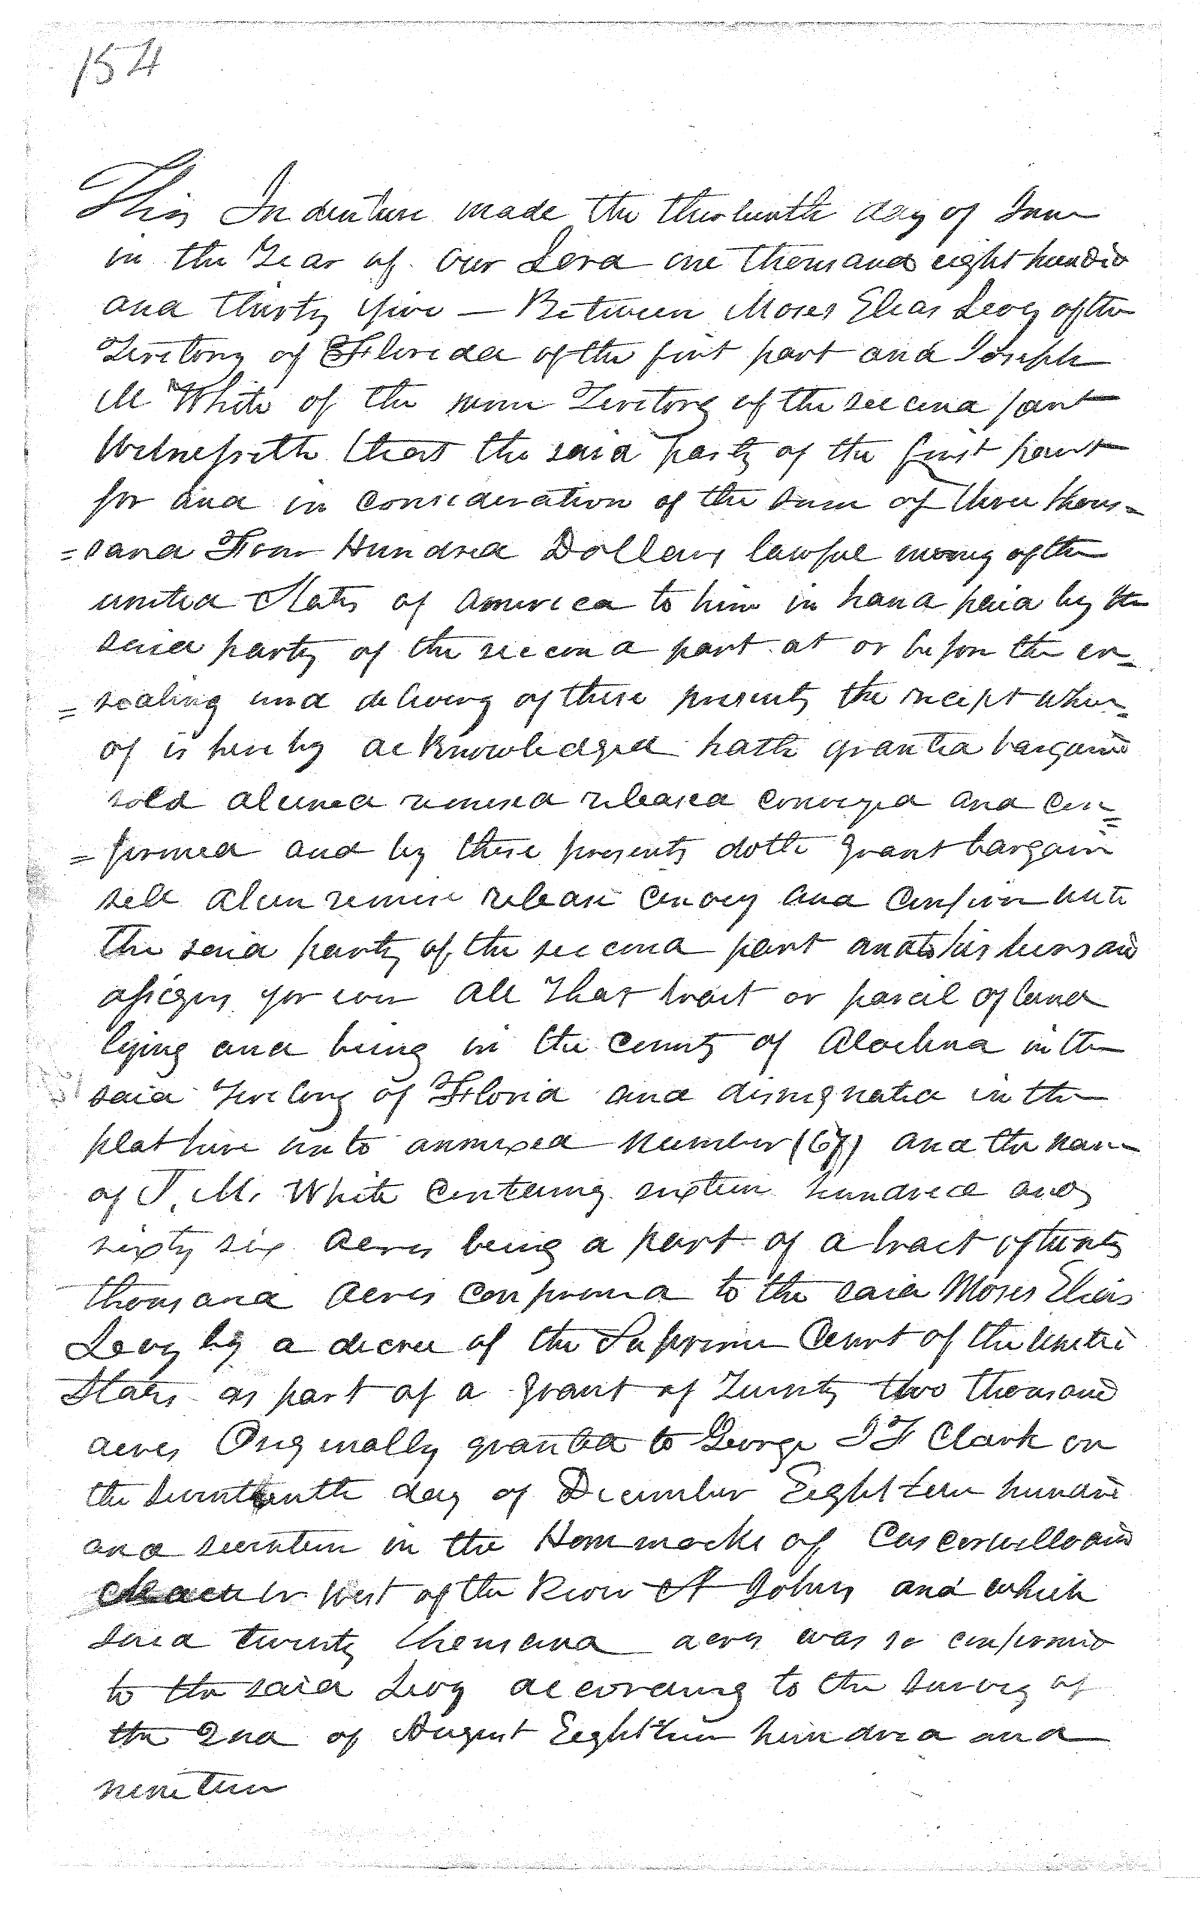 154
This Indenture made the thirteenth day of June
in the Year of our Lord one thousand eight hundred
and thirty five — Between Moses Elias Levy of the
Territory of Florida of the first part and Joseph
M White of the same Territory of the second part
Witnesseth that the said party of the first part
for and in consideration of the sum of three thou=
=sand Four Hundred Dollars lawful money of the
united States of America to him in hand paid by the
said party of the second part at or before the en=
=sealing and delivery of these presents the receipt wher=
of is hereby acknowledged hath granted bargained
sold aliened remised released conveyed and con=
=firmed and by these presents doth grant bargain
sell alien remise release convey and confirm unto
the said party of the second part and to his heirs and
assigns for ever all that tract or parcil of land
lying and being in the county of Alachua in the
said Territory of Florid and designated in the
plat here unto annexed number (67) and the name
of J. M. White containing sixteen hundred and
sixty six acres being a part of a tract of twenty
thousand acres confirmed to the said Moses Elias
Levy by a decree of the Supreme Court of the United
States as part of a grant of Twenty two thousand
acres Originally granted to George I F Clark on
the seventeenth day of December Eighteen hundred
and seventeen in the Hammocks of Cuscowillo and
West of the River St Johns and which
said twenty thousand acres was so confirmed
to the said Levy according to the survey of
the 2nd of August Eighteen hundred and
nineteen